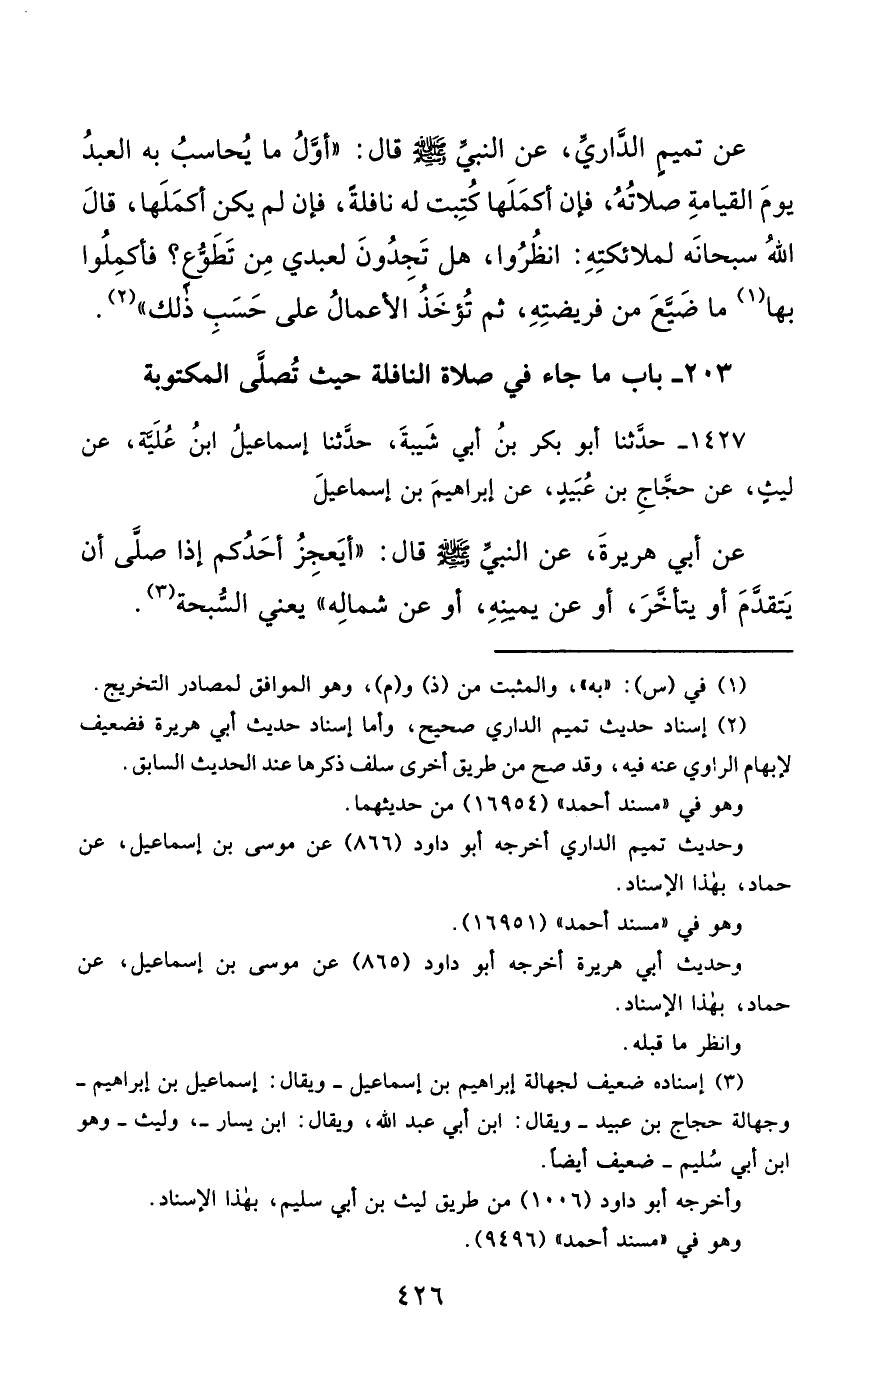 عن تميمٍ الدَّاريِّ، عن النبيِّ ﷺ قال: «أوَّلُ ما يُحاسبُ به العبدُ
يومَ القيامةِ صلاتُهُ، فإن أكمَلَها كُتِبت له نافلةً، فإن لم يكن أكمَلَها، قالَ
اللهُ سبحانَه لملائكتِهِ: انظُرُوا، هل تَجِدُونَ لعبدي مِن تَطَوُّعٍ؟ فأكمِلُوا
بها(١) ما ضَيَّعَ من فريضتِهِ، ثم تُؤخَذُ الأعمالُ على حَسَبِ ذٰلك»(٢).
٢٠٣ـ باب ما جاء في صلاة النافلة حيث تُصلَّى المكتوبة
١٤٢٧ـ حدَّثنا أبو بكر بنُ أبي شَيبةَ، حدَّثنا إسماعيلُ ابنُ عُلَيَّة، عن
ليثٍ، عن حجَّاجِ بن عُبَيدٍ، عن إبراهيمَ بن إسماعيلَ
عن أبي هريرةَ، عن النبيِّ ﷺ قال: «أيَعجِزُ أحَدُكم إذا صلَّى أن
يَتقدَّمَ أو يتأخَّرَ، أو عن يمينِهِ، أو عن شمالِه» يعني السُّبحة(٣).
(١) في (س): «به»، والمثبت من (ذ) و(م)، وهو الموافق لمصادر التخريج.
(٢) إسناد حديث تميم الداري صحيح، وأما إسناد حديث أبي هريرة فضعيف
لإبهام الراوي عنه فيه، وقد صح من طريق أخرى سلف ذكرها عند الحديث السابق.
وهو في «مسند أحمد» (١٦٩٥٤) من حديثهما.
وحديث تميم الداري أخرجه أبو داود (٨٦٦) عن موسى بن إسماعيل، عن
حماد، بهٰذا الإسناد.
وهو في «مسند أحمد» (١٦٩٥١).
وحديث أبي هريرة أخرجه أبو داود (٨٦٥) عن موسى بن إسماعيل، عن
حماد، بهٰذا الإسناد.
وانظر ما قبله.
(٣) إسناده ضعيف لجهالة إبراهيم بن إسماعيل ـ ويقال: إسماعيل بن إبراهيم ـ
وجهالة حجاج بن عبيد ـ ويقال: ابن أبي عبد الله، ويقال: ابن يسار ـ، وليث ـ وهو
ابن أبي سُليم ـ ضعيف أيضاً.
وأخرجه أبو داود (١٠٠٦) من طريق ليث بن أبي سليم، بهٰذا الإسناد.
وهو في «مسند أحمد» (٩٤٩٦).
٤٢٦